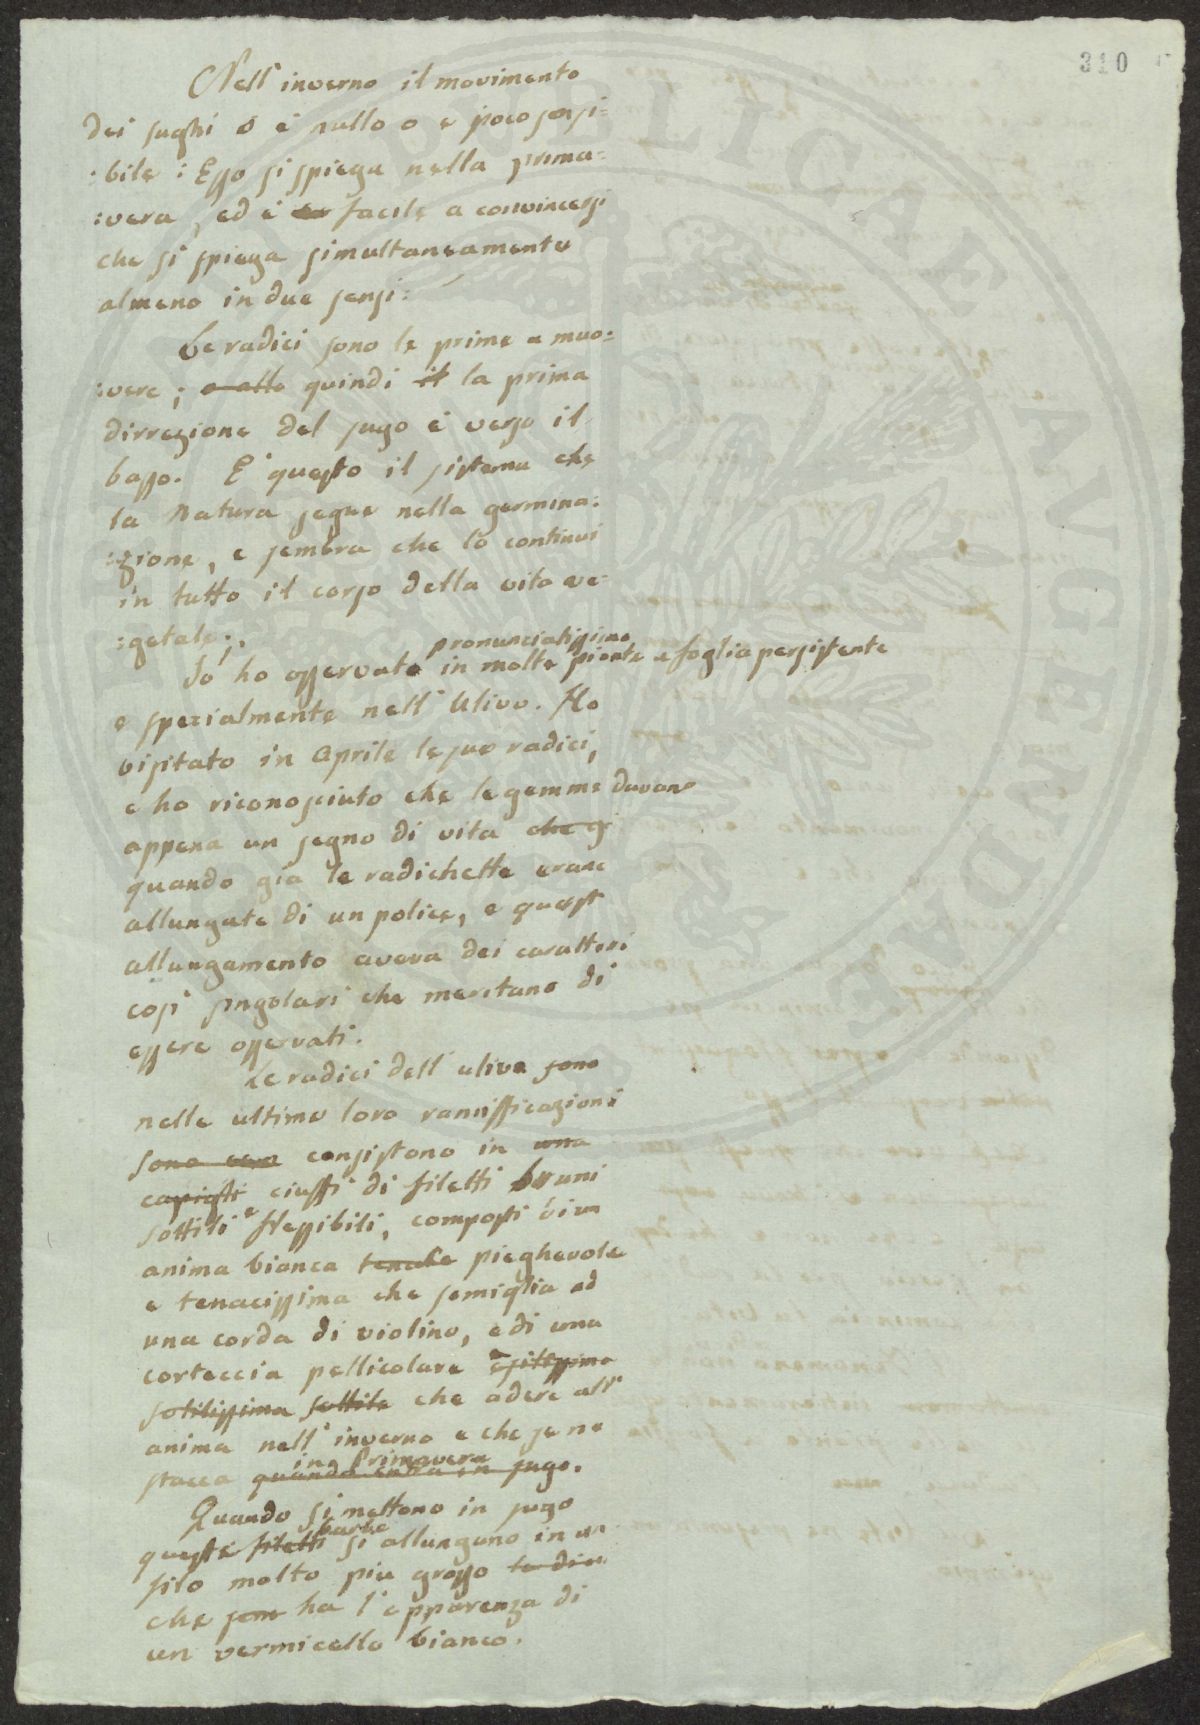 310
Nell' inverno il movimento
dei sughi o è nullo o e poco sensi:
:bile : Esso si spiega nella prima:
:vera, ed è facile a convincersi
che si spiega simultaneamente
almeno in due sensi:
Le radici sono le prime a muo:
:vere; e alle quindi il la prima
dirrezione del sugo è verso il
basso. E' questo il sistema che
la Natura segue nella germina:
:zione, e sembra che lo continui
in tutto il corso della vita ve:
:getale;.
pronunciatissimo
Io ho osservato in molte piante a foglia persistente
e specialmente nell' Ulivo. Ho
visitato in Aprile le sue radici,
e ho riconosciuto che le gemme davano
appena un segno di vita che g
quando gia le radichette erano
allungate di un police, e quest
allungamento aveva dei caratteri
così singolari che meritano di
essere osservati.
Le radici dell' ulivo sono
nelle ultime loro rannifficazioni
sono consistono in una
ciuffi di filetti bruni
sottili e flessibili, composti di un
anima bianca tenace pieghevole
e tenacissima che semiglia ad
una corda di violino, e di una
corteccia pellicolare
sotilissima sottile che adere all'
anima nell' inverno e che se ne
in Primavera
stacca quando entra in sugo.
Quando si mettono in sugo
barbe
queste filetti si allungano in un
filo molto piu grosso
che son ha l'apparenza di
un vermicello bianco.